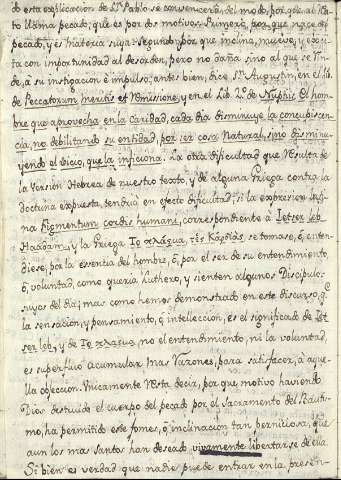 do esta explicacion de Sn. Pablo se convencería, del modo, por qe. al fi
to llama pecado; que es por dos motivos. Primero, por que nace del
pecado, y es materia suya. Segundo por que mocina, mueve, y exci
ta con importunidad al desorden, pero no daña sino al que se rin
de, a su instigacion è impulso; antes bien, dice Sn. Augustin, en el Lib.
de Peccatorum, meritis et Remissione, y en el Lib. 2º de Nuptiis. El hom
bre que aprovecha en la Caridad, cada dia disminuye la concupiscen
cia, no debilitando su entidad, por ser cosa Natural, sino disminu
yendo el vicio, que la inficiona. La otra dificultad que Resulta de
la Version Hebrea de nuestro texto, y de alguna Griega contra la
doctrina expuesta, tendria en efecto dificultad; si la expresion
na Figmentum cordis humani, correspondiente à Ietser leb
Haadam, y la Griega
diese, por la essencia del hombre, ò, por el ser de su entendimiento,
ò, voluntad, como queria Luthero, y sienten algunos Discipulos
suyos del dia; mas como hemos demonstrado en este discurso, qe.
la sensacion, y pensamiento, ò intelleccion, es el significado de Iet
ser leb, y de no el entendimiento, ni la voluntad,
es superfluo acumular mas Razones, para satisfacer, à aque
lla objeccion. Unicamente Resta decir, por que motivo haviendo
Dios destruido el cuerpo del pecado por el Sacramento del Bautis
mo, ha permitido este fomes, ò inclinacion tan perniciosa, que
aun los mas Santos han deseado vivamente libertarse de ella.
Si bien es verdad que nadie puede entrar en la presen-